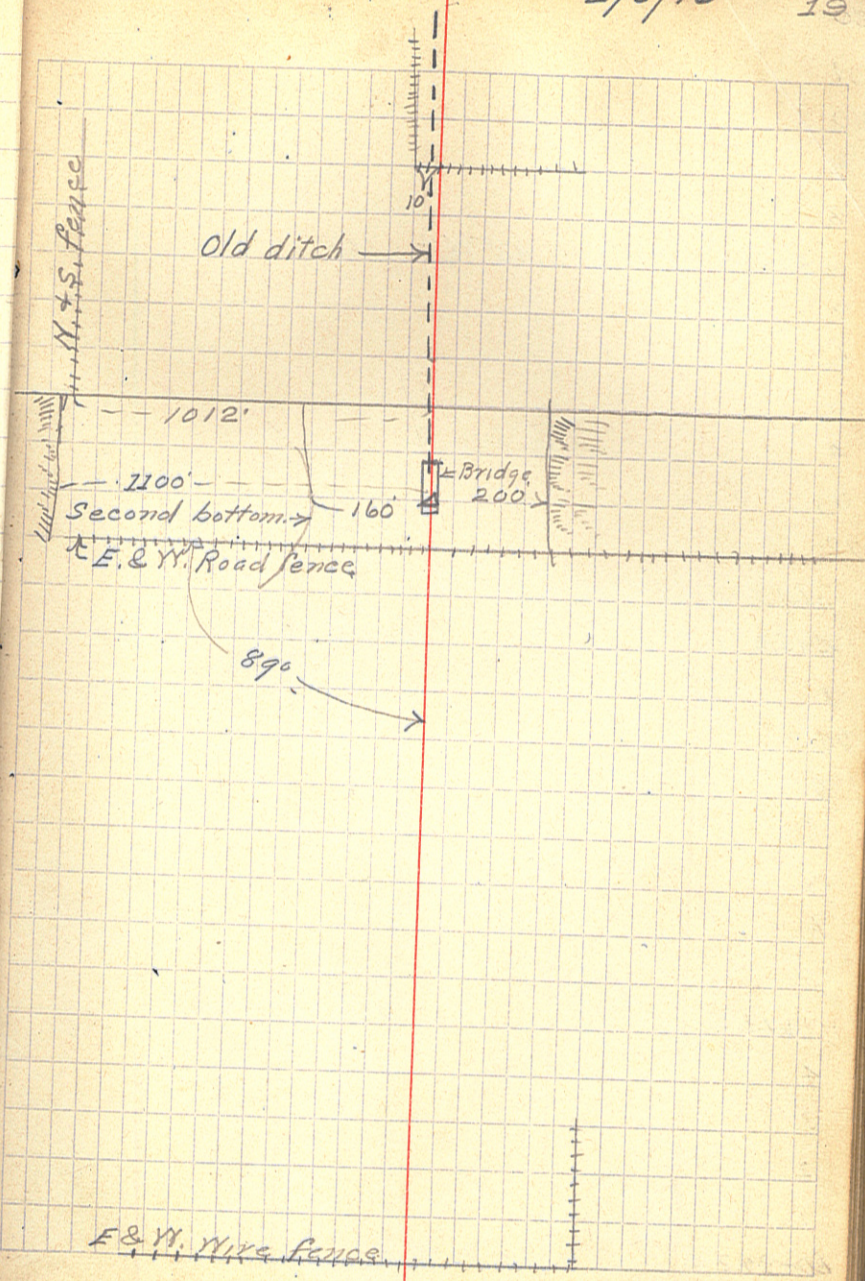 19
N. & S. fence
10
Old ditch
1012'
Bridge
1100'
200
Second bottom.
160'
E. & W. Road fence
89°
E & W. Wire fence